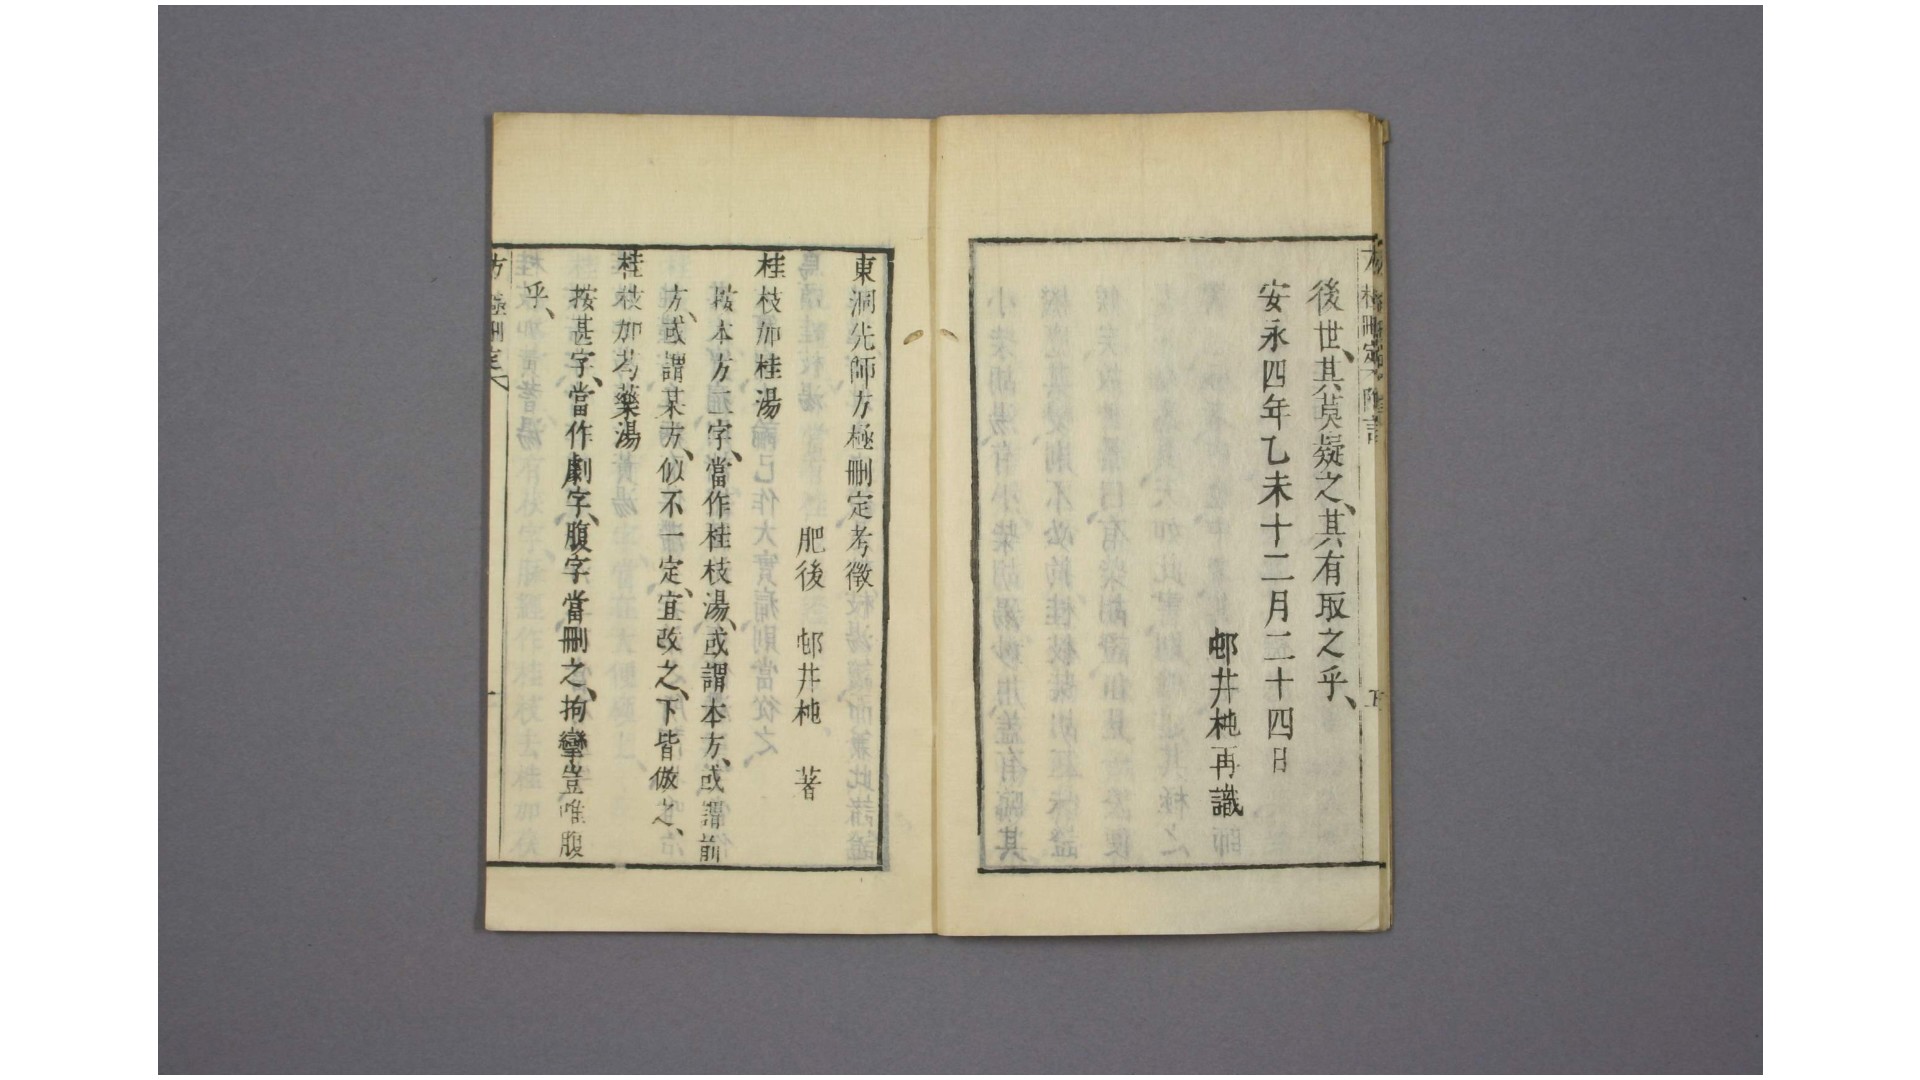 後世、其莫疑之、其有取之乎、
安永四年乙未十二月二十四日
邨井杶再識
東洞先師方極刪定考徵
肥後 邨井杶 著
桂枝加桂湯
按本方二字、當作桂枝湯、或謂本方、或謂前
方、或謂某方、似不一定、宜改之、下皆倣之、
桂枝加芍藥湯
按甚字、當作劇字、腹字當刪之、拘攣豈唯腹
乎、